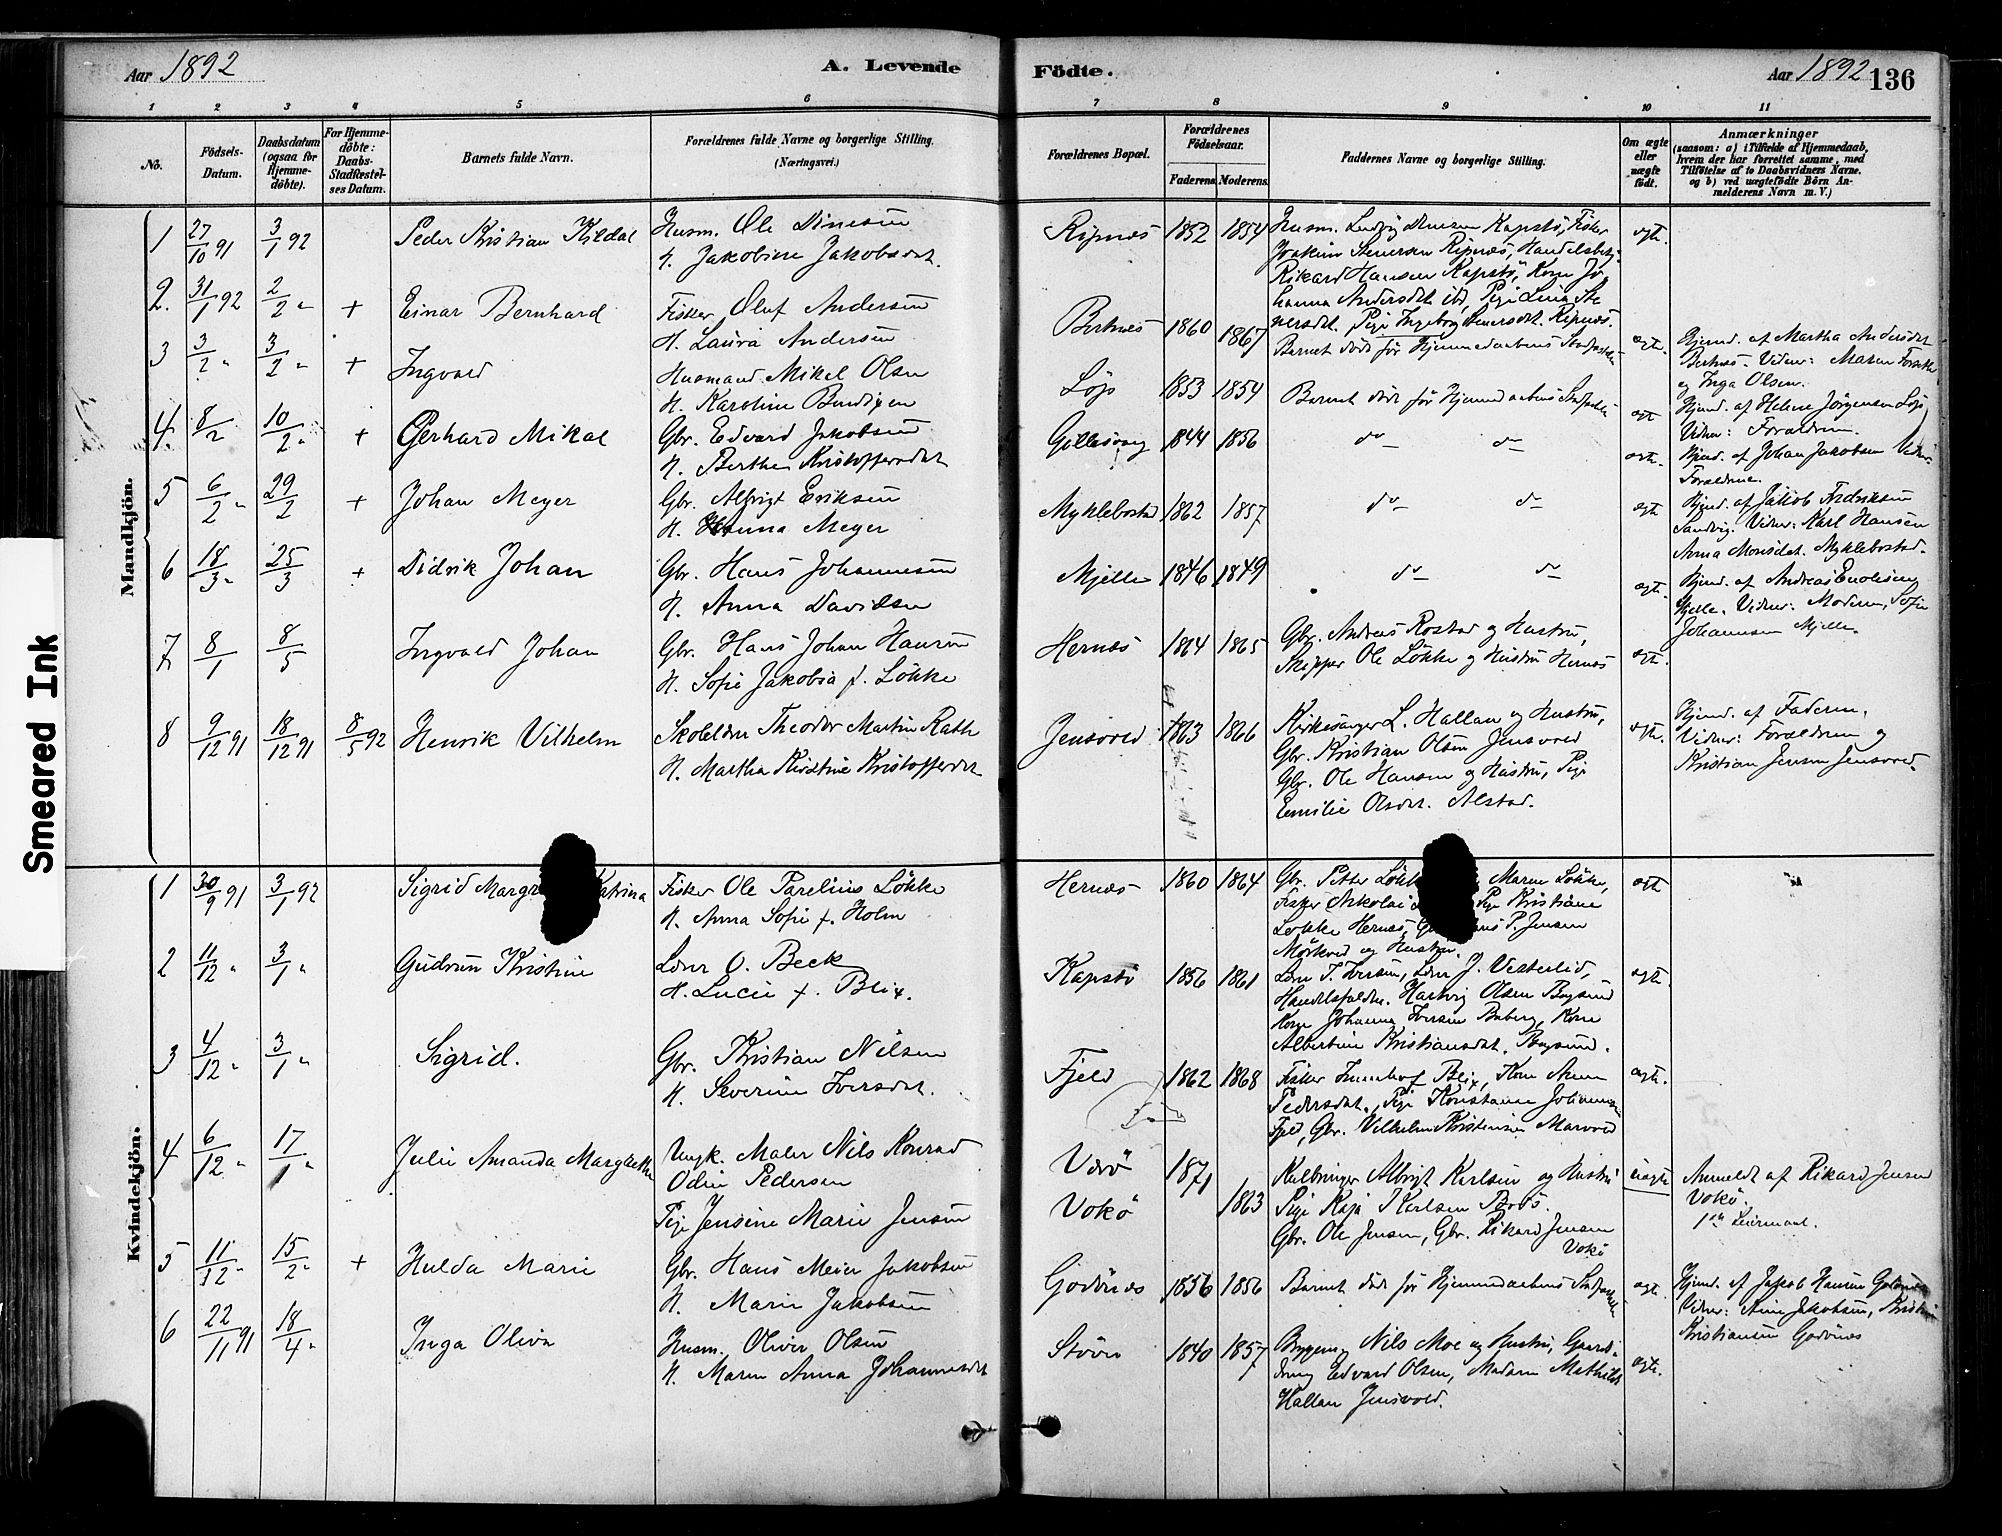 Aar 1892
A. Levende
Födte.
Aar 1892
136
1 2 3 4 5 6 7 8 9 10 11
No.
Födsels-Datum.
Daabsdatum (ogsaa for Hjemmedöbte).
For Hjemmedöbte: Daabs-Stadfæstelses Datum.
Barnets fulde Navn.
Forældrenes fulde Navne og borgerlige Stilling. (Næringsvei.)
Forældrenes Bopæl.
Forældrenes Födselsaar.
Faderens. Moderens.
Faddernes Navne og borgerlige Stilling.
Om ægte eller uægte födt.
Anmærkninger
(saasom: a) i Tilfælde af Hjemmedaab, hvem der har forrettet samme, med Tilföielse af to Daabsvidners Navne. og b) ved uægtefödte Börn Anmelderens Navn m. V.)
Smeared Ink
Mandkjön.
1 27/10 91 3/1 92 Peder Kristian Kildal
Husm. Ole Dinesen
H. Jakobine Jakobsdt.
Ripnæs 1852 1854
Husm. Ludvig Dinesen Kapstø, Fisker
Joakim Senersen Ripnæs, Handelsbetj.
Rikard Hansen Kapstø, Kone Jo-
hanna Andersdt. ibd, Pige Lina Se-
nersdt. Pige Ingeborg Senersdt. Ripnæs.
ægte.
2. 31/1 92 2/2 " + Einar Bernhard
Fisker Oluf Andersen
H. Laura Andersen
Bertnæs 1860 1867
Barnet døde før Hjemmedaabens Stadfæstelse
ægte.
Hjemd. af Martha Andersdt
Bertnæs. Vidner: Maren
og Inga Olsen.
3 3/2 " 3/2 " + Ingvald
Husmand Mikal Olsen
H. Karoline Bendixen
Løp 1853 1854
Barnet døde før Hjemmedaabens Stadfæstelse
ægte
Hjemd. af Helene Jørgensen Løp
Vidner: Forældrene.
4. 8/2 10/2 " + Gerhard Mikal
Gbr. Edvard Jakobsen
H. Berthe Kristoffersdt
Gillesvag 1844 1856
do do
ægte.
Hjemd. af Johan Jakobsen Vidner:
Forældrene.
5 6/2 " 29/2 + Johan Meyer
Gbr. Albrigt Eriksen
H. Hanna Meyer
Myklebostad 1862 1857
do do
ægte
Hjemd. af Jakob Fredriksen
Sandvig. Vidner: Karl Hansen
Anna Monsdt. Myklebostad.
6 18/3 " 25/3 + Didrik Johan
Gbr. Hans Johannesen
H. Anna Davidsen
Mjelle 1846 1849
do do
ægte.
Hjemd. af Andreas Enoksen
Mjelle. Vidner: Moderen, Sofie
Johannesen Mjelle.
7 8/1 8/5 Ingvald Johan
Gbr. Hans Johan Hansen
H. Sofie Jakobia f. Løkke
Hernæs 1864 1865
Gbr. Andreas Rostad og Hustru,
Skipper Ole Løkke og Hustru Hernæs
ægte.
8 9/12 91 18/12 91 8/5 92 Henrik Vilhelm
Skoleldrer Theodor Martin Rath
H. Martha Kirstine Kristoffersdt
Jensvold 1863 1866
Kirkesanger L. Hallan og Hustru,
Gbr. Kristian Olsen Jensvold
Gbr. Ole Hansen og Hustru, Pige
Emilie Olsdt. Alstad.
ægte.
Hjemd. af Faderen.
Vidner: Forældrene og
Kristian Jensen Jensvold.
Kvindekjön.
1 30/9 91 3/1 92 Sigrid Margr Katrina
Fisker Ole Parelius Løkke
H. Anna Sofie f. Holm
Hernæs 1860 1864
Gbr. Petter Løkke Maren Løkke,
Fisker Nikolai Pige Kristiane
Løkke Hernæs, P. Jensen
Mørkved og Hustru.
ægte
2 11/12 " 3/1 " Gudrun Kristine
Lærer O. Beck
H. Lucie f. Blix.
Kapstø 1856 1861
Lærer T. Iversen, Lærer J. Vesterlid,
Handelsfuldm. Hartvig Olsen Bogsund
Kone Johanna Iversen Boberg, Kone
Albertine Kristiansdt. Bogsund.
ægte.
3 4/12 " 3/1 " Sigrid.
Gbr. Kristian Nilsen
H. Severine Iversdt.
Fjeld 1862 1868
Fisker Immehof Blix, Kone Anne
Pedersdt. Pige Konstanse Johannesen
Fjeld, Gbr. Vilhelm Kristensen Marvold
ægte.
4 6/12 " 17/1 " Julie Amanda Margrethe
Ungk. Maler Nils Konrad
Odin Pedersen
Pige Jensine Marie Jensen
Værø 1871
Vokø 1863
Albrigt Karlsen og Hustru
Pige Kaja Karlsen Bodø.
Gbr. Ole Jensen, Gbr. Rikard Jensen
Vokø
uægte
Anmeldt af Rikard Jensen
Vokø.
1ste Leiermaal.
5 11/12 " 15/2 " + Hulda Marie
Gbr. Hans Meier Jakobsen
H. Marie Jakobsen
Godønes 1856 1856
Barnet døde før Hjemmedaabens Stadfæstelse
ægte.
Hjemd. af Jakob Hansen Godønes
Vidner: Ane Jakobsen, Kristine
Kristiansen Godønes
6 22/11 91 18/4 " Inga Oliva
Husm. Oliver Olsen
H. Maren Anna Johannesdt
Støver 1840 1857
Nils Moe og Hustru, Gaard-
dreng Edvard Olsen, Madam Mathilde
Hallan Jensvold.
ægte.